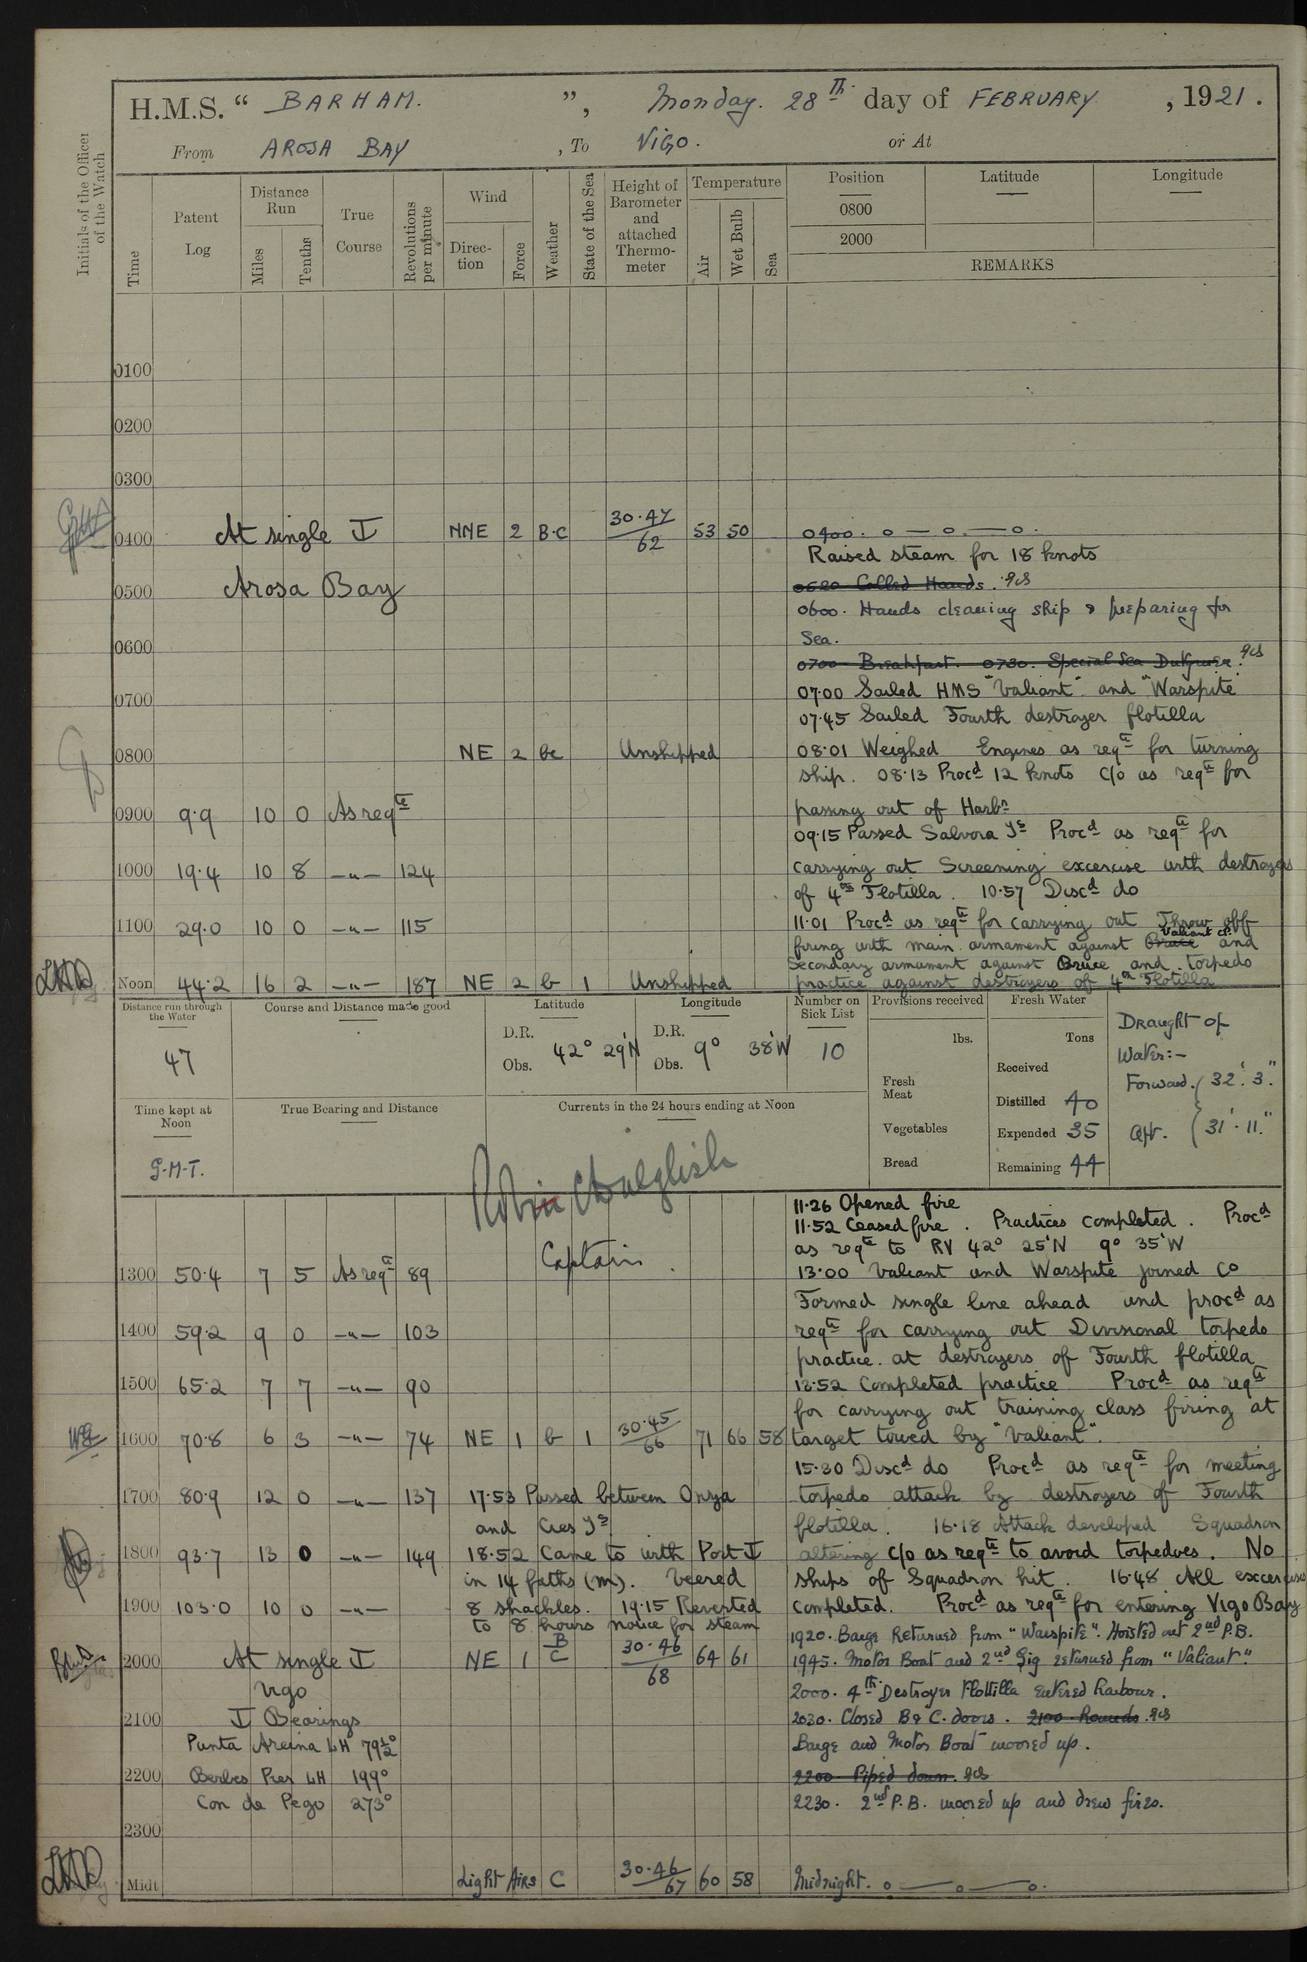 H.M.S. “ BARHAM. ”, Monday. 28th day of FEBRUARY , 1921 .
From AROSA BAY , To VIGO. or At
Initials of the Officer of the Watch
Time
Patent Log
Distance Run
Miles
Tenths
True Course
Revolutions per minute
Wind
Direction
Force
Weather
State of the Sea
Height of Barometer and attached Thermometer
Temperature
Air
Wet Bulb
Sea
Position
0800
2000
Latitude
Longitude
REMARKS
0100
0200
0300
0400 At single NNE 2 B·C 30·47/62 53 50 0400. o — o — o.
Raised steam for 18 knots
0500 Arosa Bay
0520 Called Hands.
0600. Hands cleaning ship & preparing for
Sea.
0600
0700 Breakfast. 0730. Special Sea Dutymen.
0700 07·00 Sailed HMS "Valiant" and "Warspite
07·45 Sailed Fourth destroyer flotilla
0800 NE 2 bc Unshipped 08·01 Weighed Engines as reqte for turning
ship. 08·13 Procd 12 knots C/o as reqte for
passing out of Harbr
0900 9·9 10 0 As reqte
09·15 Passed Salvora Is Procd as reqte for
1000 19·4 10 8 —"— 124 carrying out Screening excercise with destroyers
of 4th Flotilla. 10·57 Discd do
1100 29·0 10 0 —"— 115 11·01 Procd as reqte for carrying out Throw off
firing with main armament against Bruce Valiant and
Secondary armament against Bruce and torpedo
Noon 44·2 16 2 —"— 187 NE 2 b 1 Unshipped practice against destroyers of 4th Flotilla
Distance run through the Water
47
Course and Distance made good
Latitude
D.R.
Obs. 42° 29'N
Longitude
D.R.
Obs. 9° 38'W
Number on Sick List
10
Provisions received
lbs.
Fresh Meat
Vegetables
Bread
Fresh Water
Tons
Received
Distilled 40
Expended 35
Remaining 44
Draught of
Water:-
Forward. 32'. 3"
Aft. 31'·11"
Time kept at Noon
G·M·T.
True Bearing and Distance
Currents in the 24 hours ending at Noon
Captain.
11·26 Opened fire
11·52 Ceased fire. Practices completed. Procd
as reqte to RV 42° 25'N 9° 35'W
1300 50·4 7 5 As reqte 89 13·00 Valiant and Warspite joined Co
Formed single line ahead and procd as
1400 59·2 9 0 —"— 103 reqte for carrying out Divisional torpedo
practice at destroyers of Fourth flotilla
1500 65·2 7 7 —"— 90 13·52 Completed practice Procd as reqte
for carrying out training class firing at
1600 70·8 6 3 —"— 74 NE 1 b 1 30·45/66 71 66 58 target towed by "Valiant".
15·30 Discd do Procd as reqte for meeting
1700 80·9 12 0 —"— 137 17·53 Passed between Onza torpedo attack by destroyers of Fourth
and Cies Is flotilla. 16·18 Attack developed Squadron
1800 93·7 13 0 —"— 149 18·52 Came to with Port altering c/o as reqte to avoid torpedoes. No
in 14 faths (m). Veered ships of Squadron hit. 16·48 All excercises
1900 103·0 10 0 —"— 8 shackles. 19·15 Reverted completed. Procd as reqte for entering Vigo Bay
to 8 hours notice for steam 1920. Barge Returned from "Warspite". Hoisted out 2nd P.B.
2000 At single NE 1 B/C 30·46/68 64 61 1945. Motor Boat and 2nd Gig returned from "Valiant."
Vigo 2000. 4th Destroyer Flotilla entered harbour.
2100 Bearings 2030. Closed B & C. doors. 2100 Rounds.
Punta Areina LH 79½° Barge and Motor Boat moored up.
2200 Berbes Pier LH 199° 2200 Piped down.
Con de Pego 273° 2230. 2nd P.B. moored up and drew fires.
2300
Midt Light Airs C 30·46/67 60 58 Midnight. o — o — o.